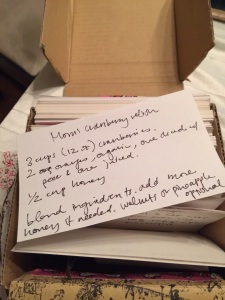 Mom's cranberry relish
3 cups (12 oz) cranberries.
2 oranges, organic, one diced w/
peel & one juiced.
1/2 cup honey
blend ingredients. add more
honey if needed. walnuts or pineapple
optional